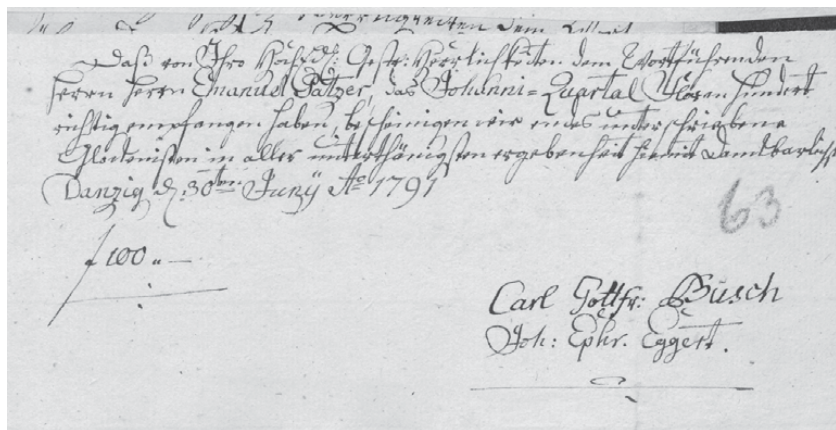 Daß von Ihro Hochedl: Gestr: Herrlichkeiten dem Wortführenden
Herrn Herrn Emanuel Patzer, das Johanni= Quartal Floren hundert
richtig empfangen haben, bescheinigen wir endes unterschriebene
Glockenisten in aller unterthänigsten ergebenheit hiemit
Danzig d: 30ten Junÿ Ao 1791
63
f 100 „ —
Carl Gottfr: Busch
Joh: Ephr. Eggert.